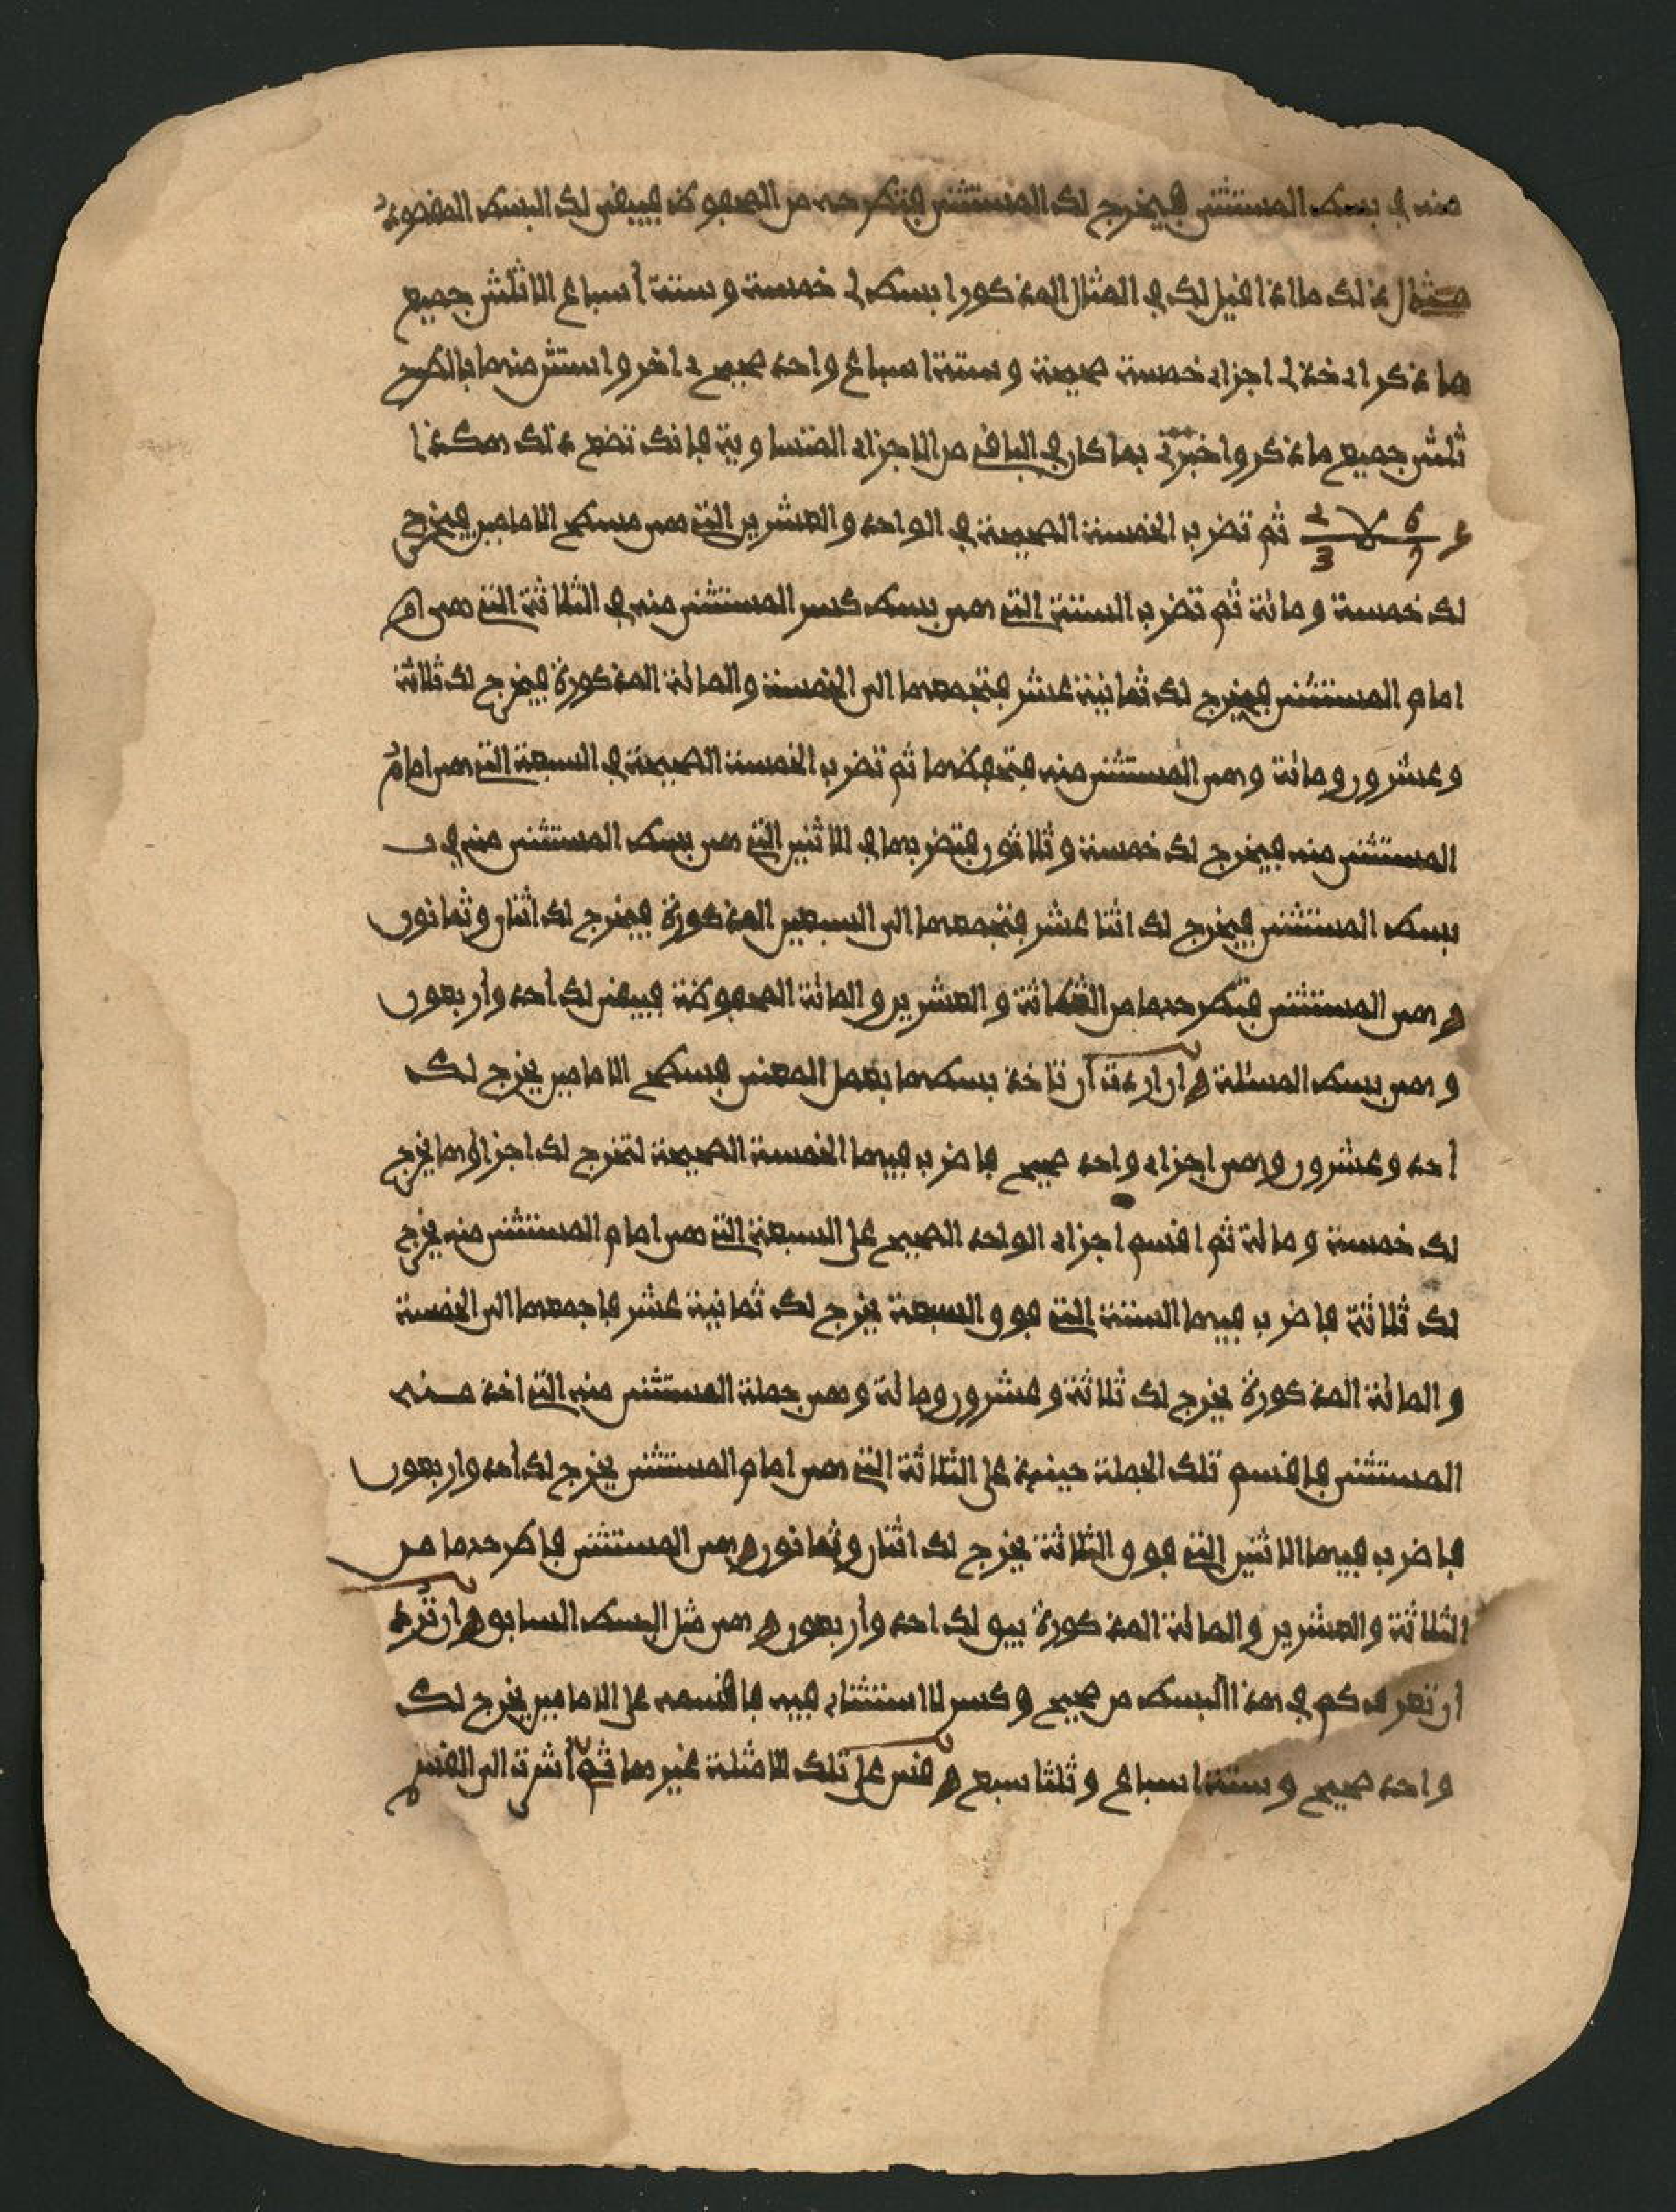 منه في بسط المستثنى فيخرج لك المستثنى فتطرحه من المحفوظ فيبقى لك البسط المقصود
مثال ذلك ما اذا قيل لك في المثال المذكور ابسط لي خمسة وستة أسباع الا ثلثي جميع
ما ذكر اي خذ لي اجزاء خمسة صحيحة وستة اسباع واحد صحيح اخر واستثن منها بالطرح
ثلثي جميع ما ذكر واخبرني بما كان في الباقي من الاجزاء المتساوية فانك تضع ذلك هكذا
6 2 7 3 ثم تضرب الخمسة الصحيحة في الواحد والعشرين التي هي مسطح الامامين فيخرج
لك خمسة ومائة ثم تضرب الستة التي هي بسط كسر المستثنى منه في الثلاثة التي هي ا
امام المستثنى فيخرج لك ثمانية عشر فتجمعها الى الخمسة والمائة المذكورة فيخرج لك ثلاثة
وعشرون ومائة وهي المستثنى منه فتحفظها ثم تضرب الخمسة الصحيحة في السبعة التي هي امام
المستثنى منه فيخرج لك خمسة وثلاثون فتضربها في الاثنين التي هي بسط المستثنى منه في
بسط المستثنى فيخرج لك اثنا عشر فتجمعها الى السبعين المذكورة فيخرج لك اثنان وثمانون
وهي المستثنى فتطرحها من الثلاثة والعشرين والمائة المحفوظة فيبقى لك أحد وأربعون
وهي بسط المسئلة وان اردت أن تاخذ بسطها بعمل المعنى فسطح الامامين يخرج لك
أحد وعشرون وهي اجزاء واحد صحيح فاضرب فيها الخمسة الصحيحة لتخرج لك اجزاؤها يخرج
لك خمسة ومائة ثم اقسم اجزاء الواحد الصحيح على السبعة التي هي امام المستثنى منه يخرج
لك ثلاثة فاضرب فيها الستة التي فوق السبعة يخرج لك ثمانية عشر فاجمعها الى الخمسة
والمائة المذكورة يخرج لك ثلاثة وعشرون ومائة وهي جملة المستثنى منه التي اخذ منه
المستثنى فاقسم تلك الجملة حينئذ على الثلاثة التي هي امام المستثنى يخرج لك أحد واربعون
فاضرب فيها الاثنين التي فوق الثلاثة يخرج لك اثنان وثمانون وهي المستثنى فاطرحها من
الثلاثة والعشرين والمائة المذكورة يبق لك احد وأربعون وهي مثل البسط السابق وان ترد
ان تعرف كم في هذا البسط من صحيح وكسر لا استثناء فيه فاقسمه على الامامين يخرج لك
واحد صحيح وستة اسباع وثلثا سبع وقس على تلك الامثلة غيرها ثم أشرت الى القسم